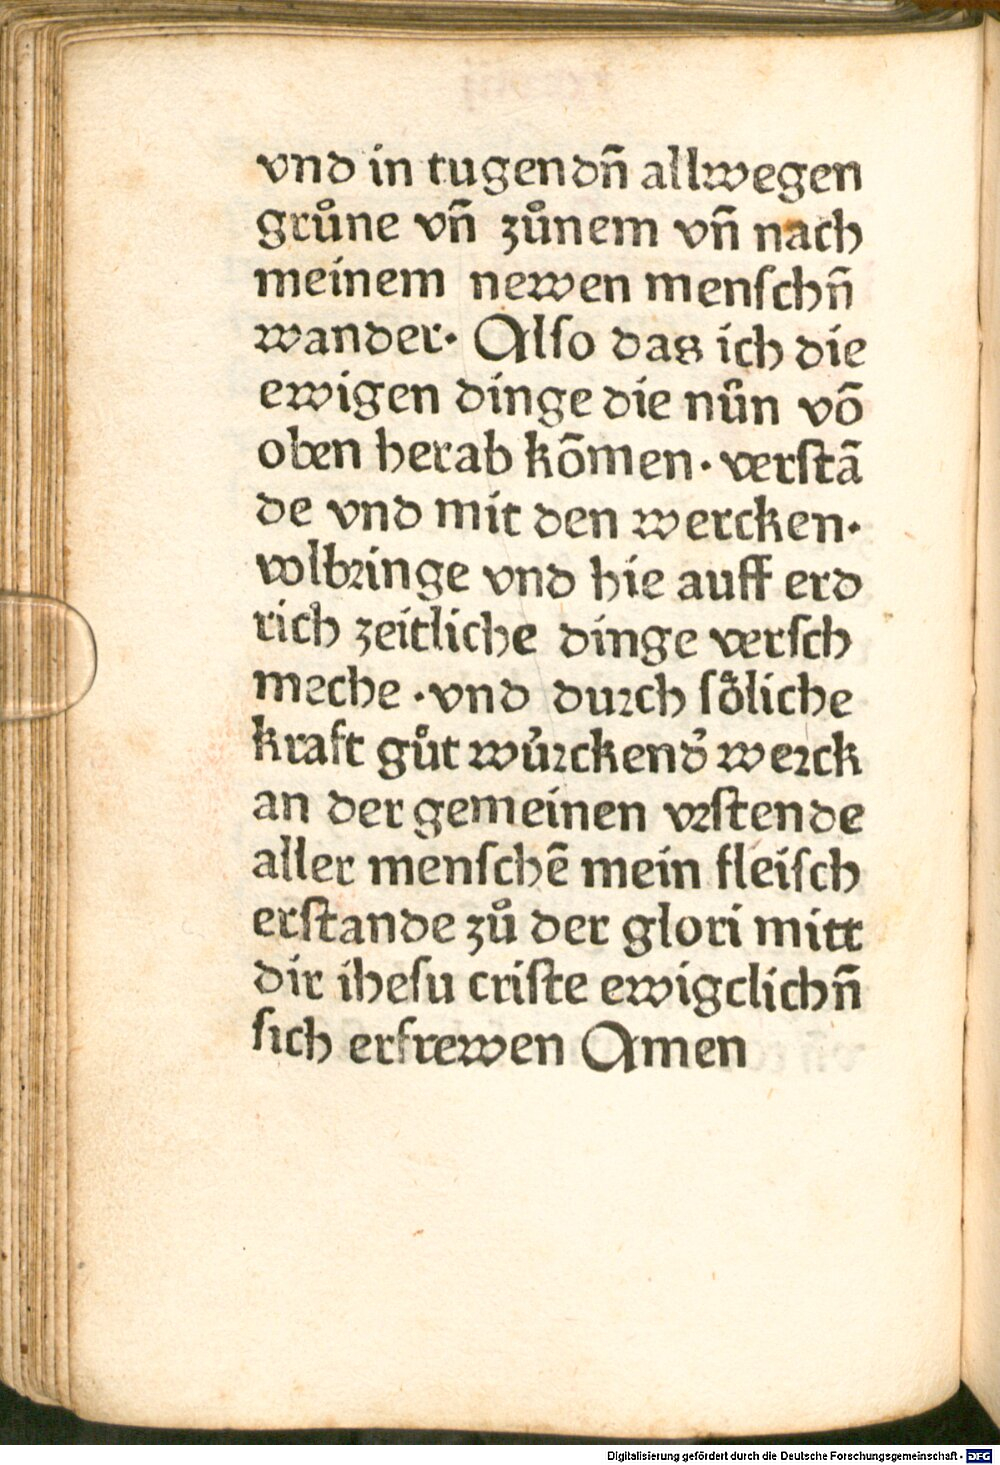 vnd in tugendn̄ allwegen
grůne vn̄ zůnem vn̄ nach
meinem newen menſchn̄
wander· Alſo das ich die
ewigen dinge die nůn vō
oben herab kōmen · verſtā
de vnd mit den wercken·
volbꝛinge vnd hie auff erd
rich zeitliche dinge verſch
meche · vnd durch ſoͤliche
kraft gůt wůꝛckend̉ weꝛck
an der gemeinen vꝛſtende
aller menſchē mein fleiſch
erſtande zů der glori mitt
dir iheſu criſte ewigclichn̄
ſich erfrewen Amen
Digitalisierung gefördert durch die Deutsche Forschungsgemeinschaft · DFG